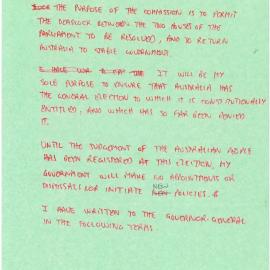 THE PURPOSE OF THE COMMISSION IS TO PERMIT
THE DEADLOCK BETWEEN THE TWO HOUSES OF THE
PARLIAMENT TO BE RESOLVED, AND TO RETURN
AUSTRALIA TO STABLE GOVERNMENT.
IT WILL BE MY
SOLE PURPOSE TO ENSURE THAT AUSTRALIA HAS
THE GENERAL ELECTION TO WHICH IT IS CONSTITUTIONALLY
ENTITLED, AND WHICH HAS SO FAR BEEN DENIED
IT.
UNTIL THE JUDGEMENT OF THE AUSTRALIAN PEOPLE
HAS BEEN REGISTERED AT THIS ELECTION, MY
GOVERNMENT WILL MAKE NO APPOINTMENTS OR
DISMISSALS OR INITIATE NEW POLICIES.
I HAVE WRITTEN TO THE GOVERNOR-GENERAL
IN THE FOLLOWING TERMS